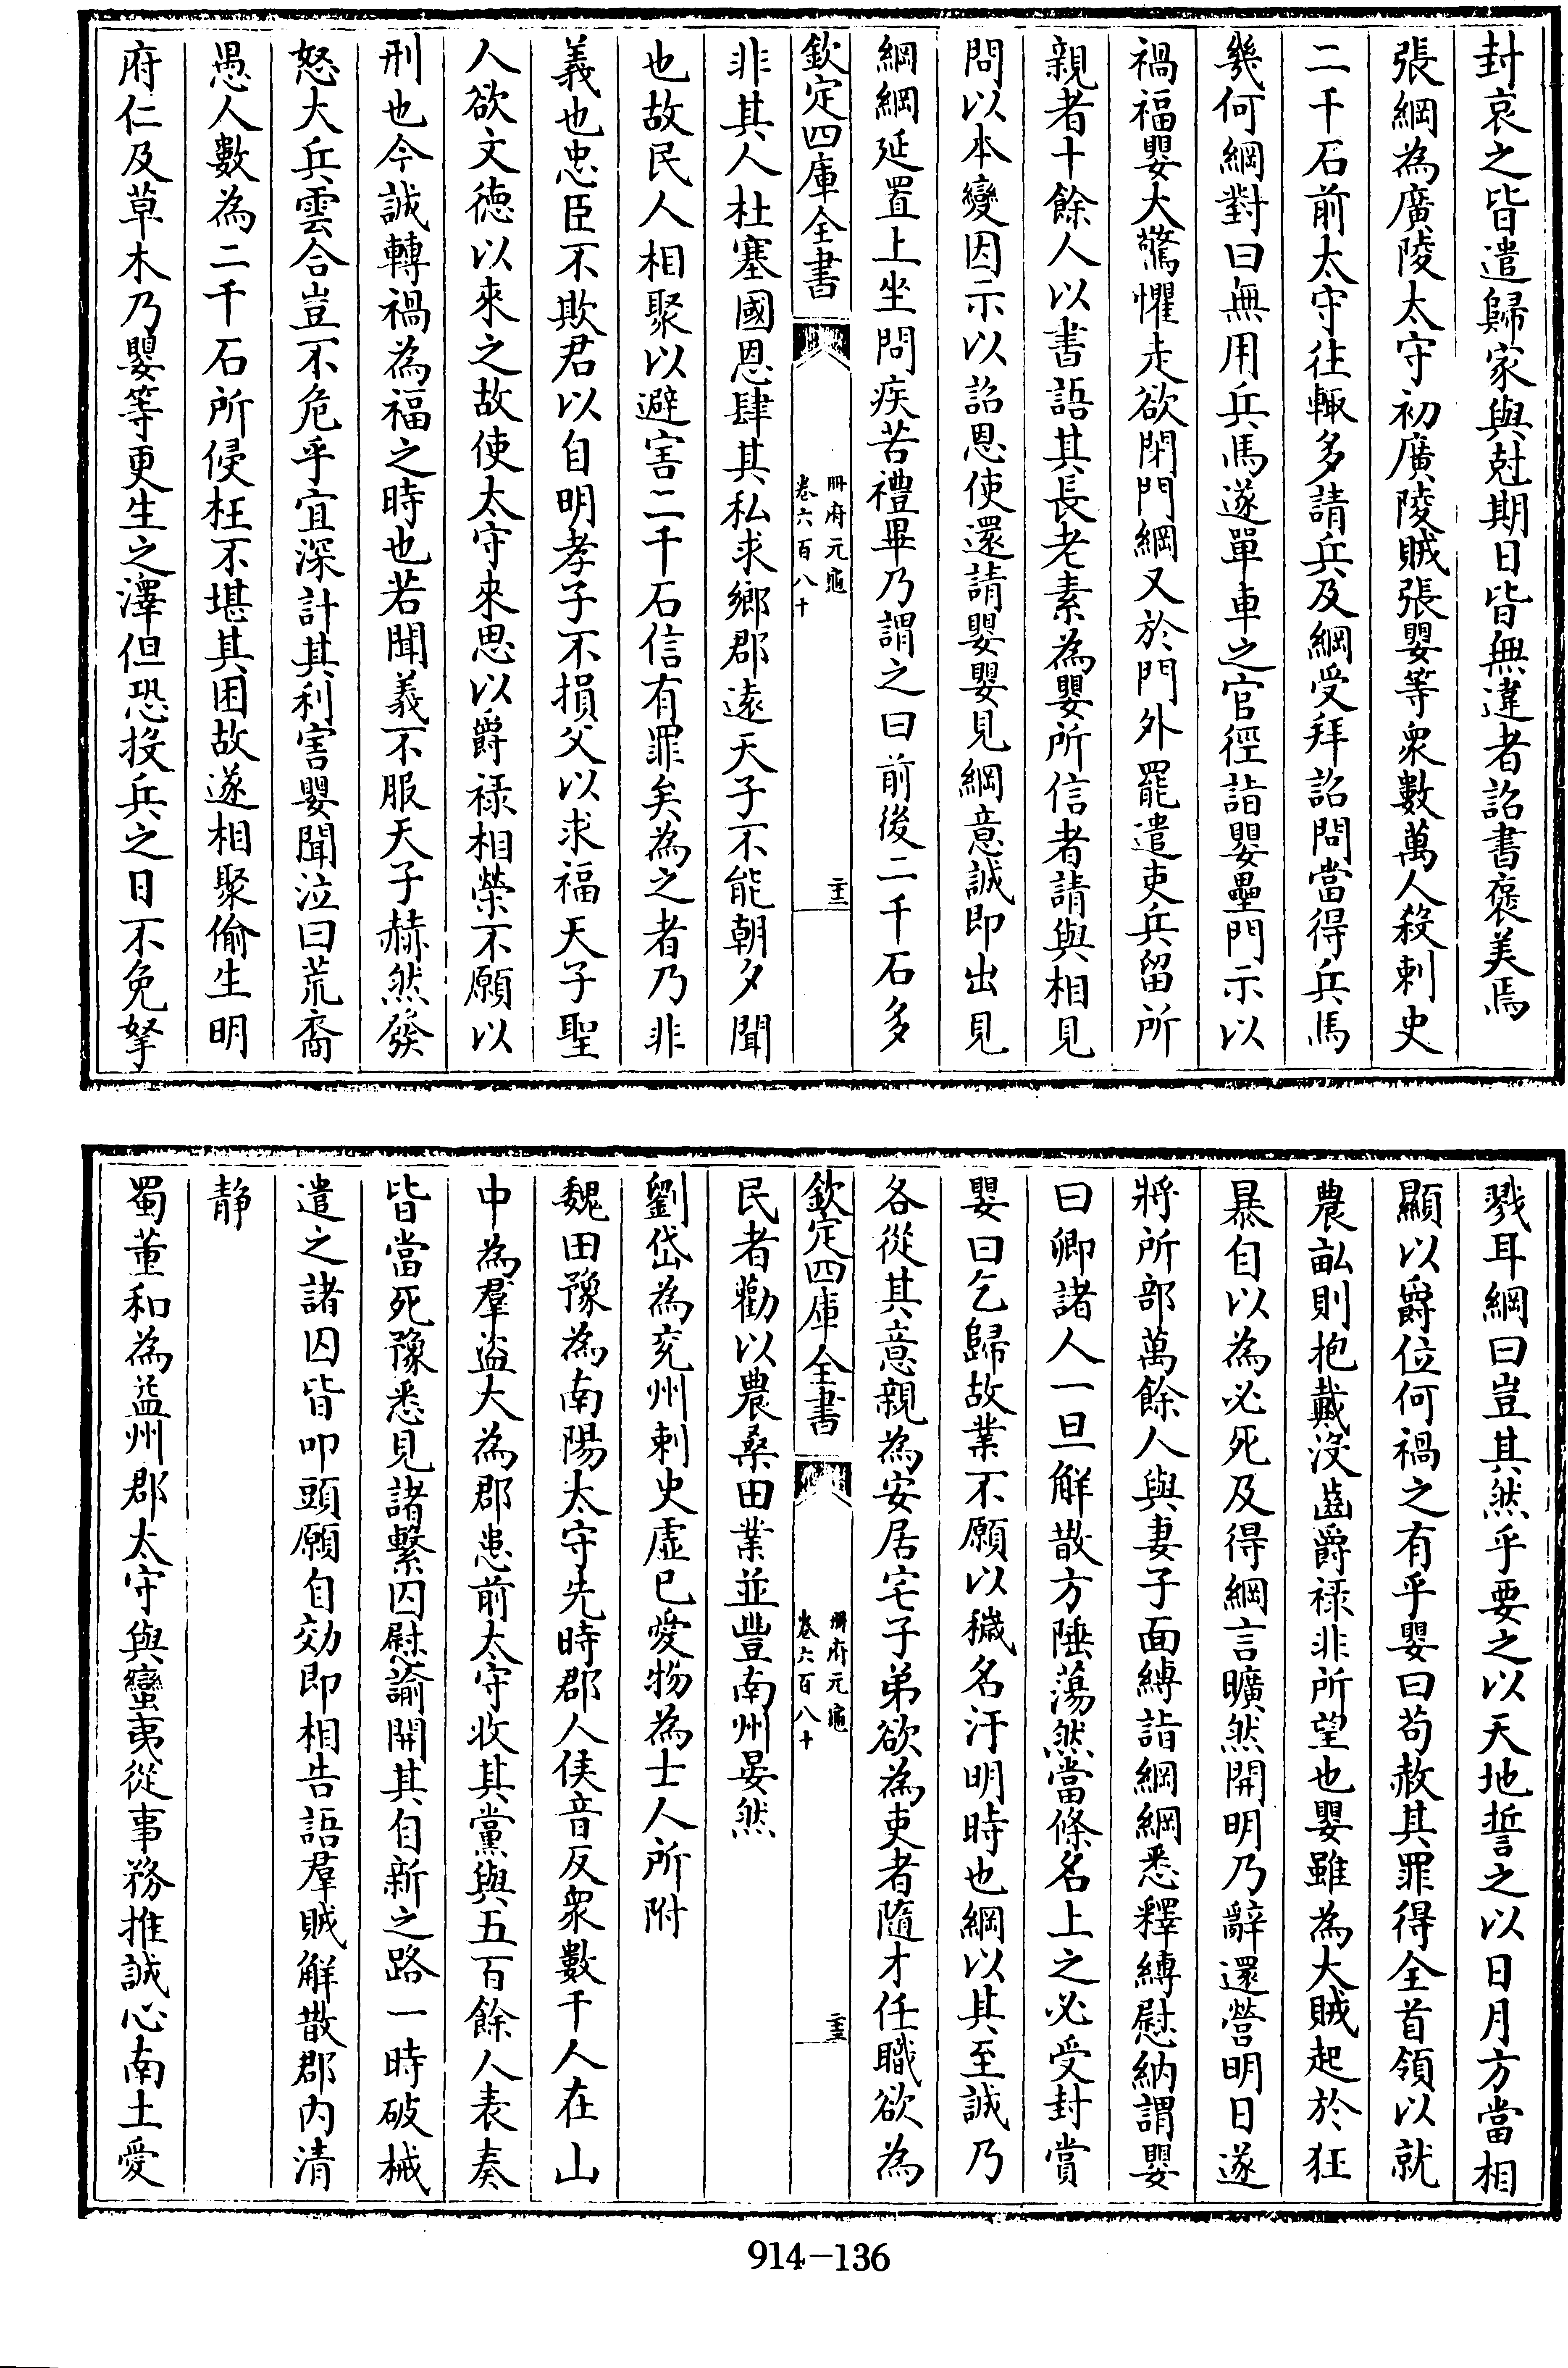 封哀之皆遣歸家與尅期日皆無違者詔書褒美焉
張綱為廣陵太守初廣陵賊張嬰等衆數萬人殺刺史
二千石前太守往輙多請兵及綱受拜詔問當得兵馬
幾何綱對曰無用兵馬遂單車之官徑詣嬰壘門示以
禍福嬰大驚懼走欲閉門綱又於門外罷遣吏兵留所
親者十餘人以書語其長老素為嬰所信者請與相見
問以本變因示以詔恩使還請嬰嬰見綱意誠即出見
綱綱延置上坐問疾苦禮畢乃謂之曰前後二千石多
欽定四庫全書
冊府元龜
卷六百八十
二十二
非其人杜塞國恩肆其私求鄉郡遠天子不能朝夕聞
也故民人相聚以避害二千石信有罪矣為之者乃非
義也忠臣不欺君以自明孝子不損父以求福天子聖
人欲文德以來之故使太守來思以爵禄相榮不願以
刑也今誠轉禍為福之時也若聞義不服天子赫然發
怒大兵雲合豈不危乎宜深計其利害嬰聞泣曰荒裔
愚人數為二千石所侵枉不堪其困故遂相聚偷生明
府仁及草木乃嬰等更生之澤但恐投兵之日不免孥
戮耳綱曰豈其然乎要之以天地誓之以日月方當相
顯以爵位何禍之有乎嬰曰苟赦其罪得全首領以就
農畝則抱戴沒齒爵禄非所望也嬰雖為大賊起於狂
暴自以為必死及得綱言曠然開明乃辭還營明日遂
將所部萬餘人與妻子面縛詣綱綱悉釋縛慰納謂嬰
曰卿諸人一旦解散方陲蕩然當條名上之必受封賞
嬰曰乞歸故業不願以穢名汙明時也綱以其至誠乃
各從其意親為安居宅子弟欲為吏者隨才任職欲為
欽定四庫全書
冊府元龜
卷六百八十
二十三
民者勸以農桑田業並豐南州晏然
劉岱為兖州刺史虛已愛物為士人所附
魏田豫為南陽太守先時郡人侯音反衆數千人在山
中為羣盗大為郡患前太守收其黨與五百餘人表奏
皆當死豫悉見諸繫囚慰諭開其自新之路一時破械
遣之諸囚皆叩頭願自効即相告語羣賊解散郡内清
静
蜀董和為益州郡太守與蠻夷從事務推誠心南土愛
914-136